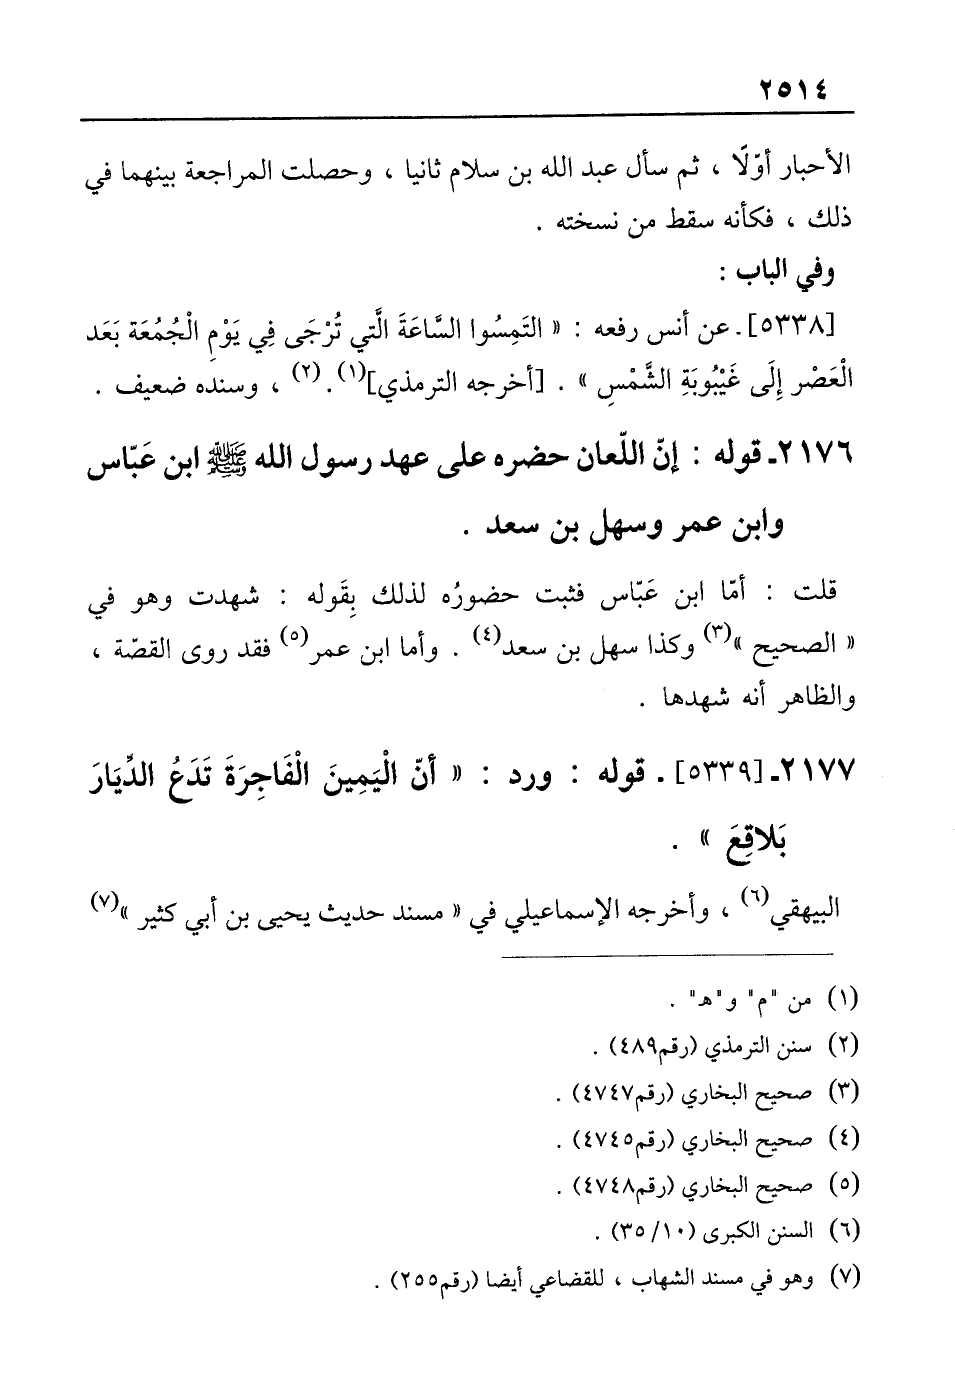 ٢٥١٤
الأحبار أوّلًا ، ثم سأل عبد الله بن سلام ثانيا ، وحصلت المراجعة بينهما في
ذلك ، فكأنه سقط من نسخته .
وفي الباب :
[٥٣٣٨]. عن أنس رفعه : « التَمِسُوا السَّاعَةَ الَّتي تُرْجَى فِي يَوْمِ الْجُمُعَة بَعَد
الْعَصْر إِلَى غَيْبُوبَةِ الشَّمْسِ » . [أخرجه الترمذي](١).(٢) ، وسنده ضعيف .
٢١٧٦ـ قوله : إنّ اللّعان حضره على عهد رسول الله ﷺ ابن عَبّاس
وابن عمر وسهل بن سعد .
قلت : أمّا ابن عَبّاس فثبت حضورُه لذلك بِقَوله : شهدت وهو في
« الصحيح »(٣) وكذا سهل بن سعد(٤) . وأما ابن عمر(٥) فقد روى القصّة ،
والظاهر أنه شهدها .
٢١٧٧ـ [٥٣٣٩]. قوله : ورد : « أنّ الْيَمِينَ الْفَاجِرَةَ تَدَعُ الدِّيَارَ
بَلاقِعَ » .
البيهقي(٦) ، وأخرجه الإسماعيلي في « مسند حديث يحيى بن أبي كثير »(٧)
(١) من "م" و"هـ" .
(٢) سنن الترمذي (رقم٤٨٩) .
(٣) صحيح البخاري (رقم٤٧٤٧) .
(٤) صحيح البخاري (رقم٤٧٤٥) .
(٥) صحيح البخاري (رقم٤٧٤٨) .
(٦) السنن الكبرى (١٠/ ٣٥) .
(٧) وهو في مسند الشهاب ، للقضاعي أيضا (رقم٢٥٥) .